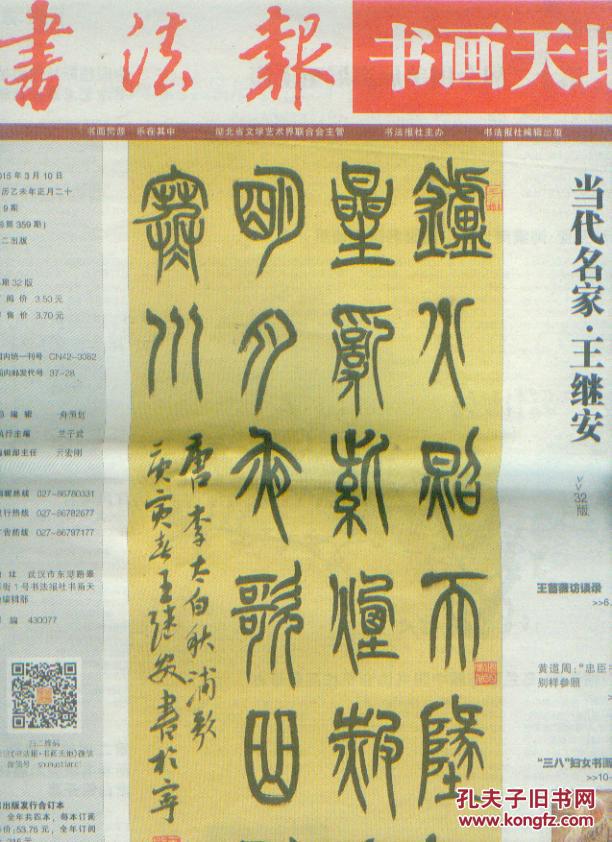 書法報
书画天地
书画赏源 乐在其中 湖北省文学艺术界联合会主管 书法报社主办 书法报社编辑出版
015年3月10日
历乙未年正月二十
9期
第359期)
二出版
期32版
阅价 3.50元
售价 3.70元
国内统一刊号 CN42-3352
37-28
总编辑
执行主编 兰干武
编辑部主任
编辑热线 027-86780331
发行热线 027-86782677
广告热线 027-86797177
址 武汉市东湖路翠
街1号书法报社书画天
编辑部
编 430077
扫二维码
出版发行合订本
全年共四本,每本订阅
价:53.75元,全年订阅
215元
鑪火照天地
星亂紫煙赧
明月夜歌曲
寒川
唐李太白秋浦歌
庚寅春王继安書於寧
当代名家·王继安
>>32版
访谈录
>>6
黄道周:“忠臣
别样参照
“三八”妇女书画
>>10
孔夫子旧书网
www.kongfz.com